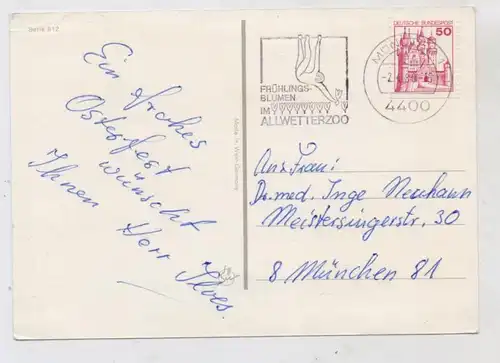 Serie 612
Ein frohes
Osterfest
wünscht
Ihnen Herr
FRÜHLINGS-
BLUMEN
IM
ALLWETTERZOO
4400
DEUTSCHE BUNDESPOST
50
An Frau:
Dr. med. Inge Neuhann
Meistersingerstr. 30
8 München 81